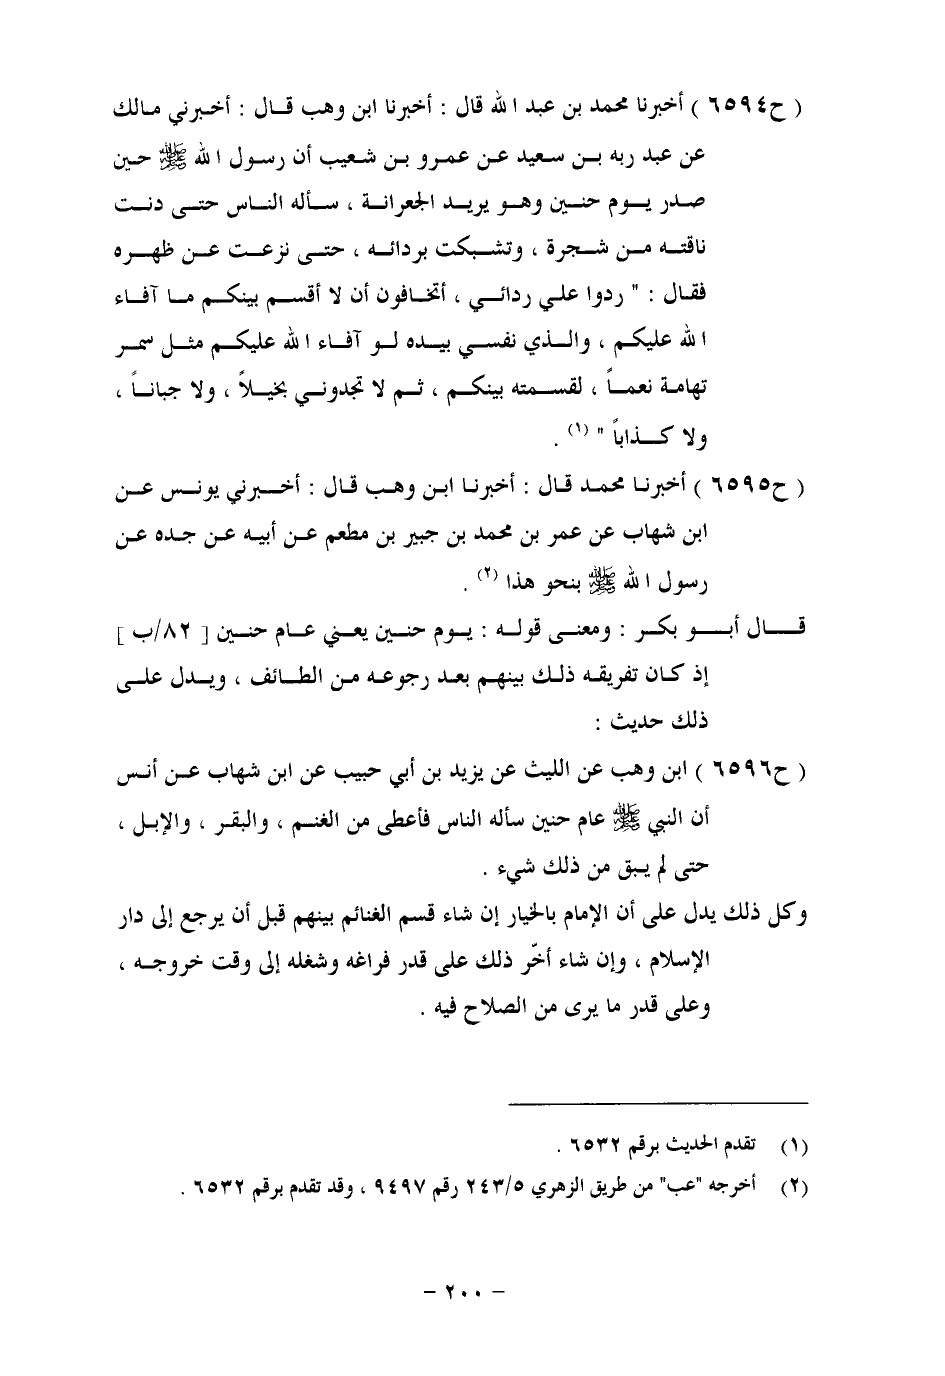 ( ح٦٥٩٤ ) أخبرنا محمد بن عبد الله قال : أخبرنا ابن وهب قال : أخبرني مالك
عن عبد ربه بن سعيد عن عمرو بن شعيب أن رسول الله ﷺ حين
صدر يوم حنين وهو يريد الجعرانة ، سأله الناس حتى دنت
ناقته من شجرة ، وتشبكت بردائه ، حتى نزعت عن ظهره
فقال : " ردوا علي ردائي ، أتخافون أن لا أقسم بينكم ما آفاء
الله عليكم ، والذي نفسي بيده لو آفاء الله عليكم مثل سمر
تهامة نعماً ، لقسمته بينكم ، ثم لا تجدوني بخيلاً ، ولا جباناً ،
ولا كذاباً " (١) .
( ح٦٥٩٥ ) أخبرنا محمد قال : أخبرنا ابن وهب قال : أخبرني يونس عن
ابن شهاب عن عمر بن محمد بن جبير بن مطعم عن أبيه عن جده عن
رسول الله ﷺ بنحو هذا (٢) .
قال أبو بكر : ومعنى قوله : يوم حنين يعني عام حنين [ ٨٢/ب ]
إذ كان تفريقه ذلك بينهم بعد رجوعه من الطائف ، ويدل على
ذلك حديث :
( ح٦٥٩٦ ) ابن وهب عن الليث عن يزيد بن أبي حبيب عن ابن شهاب عن أنس
أن النبي ﷺ عام حنين سأله الناس فأعطى من الغنم ، والبقر ، والإبل ،
حتى لم يبق من ذلك شيء .
وكل ذلك يدل على أن الإمام بالخيار إن شاء قسم الغنائم بينهم قبل أن يرجع إلى دار
الإسلام ، وإن شاء أخّر ذلك على قدر فراغه وشغله إلى وقت خروجه ،
وعلى قدر ما يرى من الصلاح فيه .
(١) تقدم الحديث برقم ٦٥٣٢ .
(٢) أخرجه "عب" من طريق الزهري ٢٤٣/٥ رقم ٩٤٩٧ ، وقد تقدم برقم ٦٥٣٢ .
- ٢٠٠ -